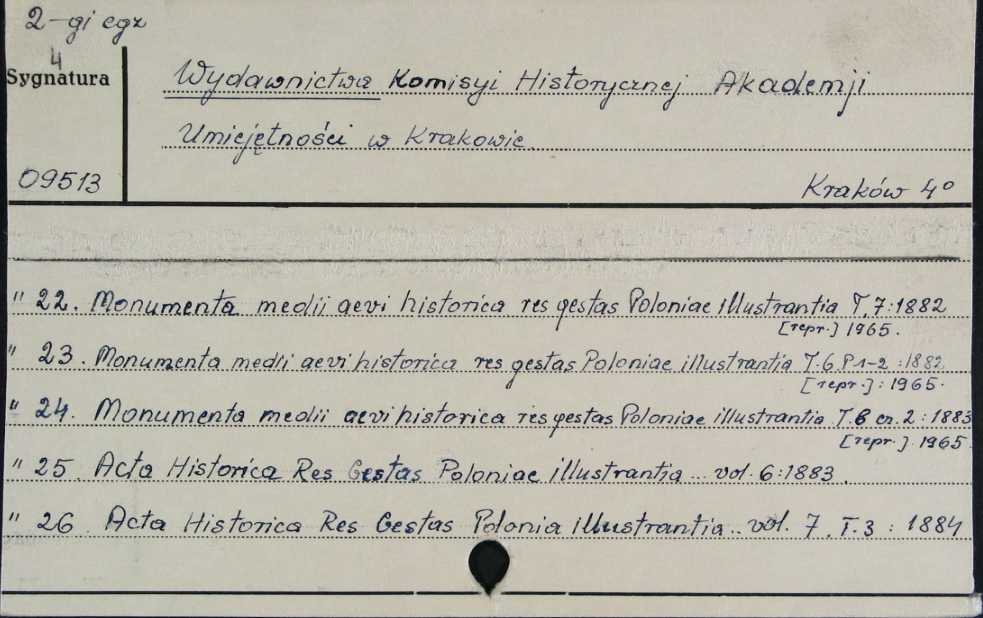 2-gi egz
4
Sygnatura
Wydawnictwa Komisyi Historycznej Akademji
Umiejętności w Krakowie
09513
Kraków 4°
" 22. Monumenta medii aevi historica res gestas Poloniae illustrantia T. 7 : 1882
[repr.] 1965.
" 23. Monumenta medii aevi historica res gestas Poloniae illustrantia T. 6 P 1-2 : 1882
[repr.] : 1965.
" 24. Monumenta medii aevi historica res gestas Poloniae illustrantia T. 6 cz. 2 : 1883
[repr.] 1965.
" 25. Acta Historica Res Gestas Poloniae illustrantia ... vol. 6 : 1883.
" 26. Acta Historica Res Gestas Polonia illustrantia .. vol. 7. T. 3 : 1884